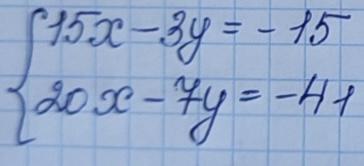 15x - 3y = -15
20x - 7y = -41